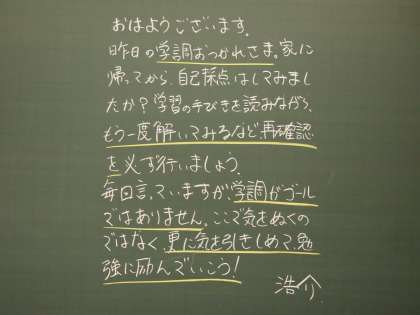 おはようございます。
昨日の学調おつかれさま。家に
帰ってから、自己採点はしてみまし
たか?学習の手びきを読みながら、
もう一度解いてみるなど、再確認
を必ず行いましょう。
毎日言っていますが、学調がゴール
ではありません。ここで気をぬくの
ではなく、更に気を引きしめて、勉
強に励んでいこう!
浩介